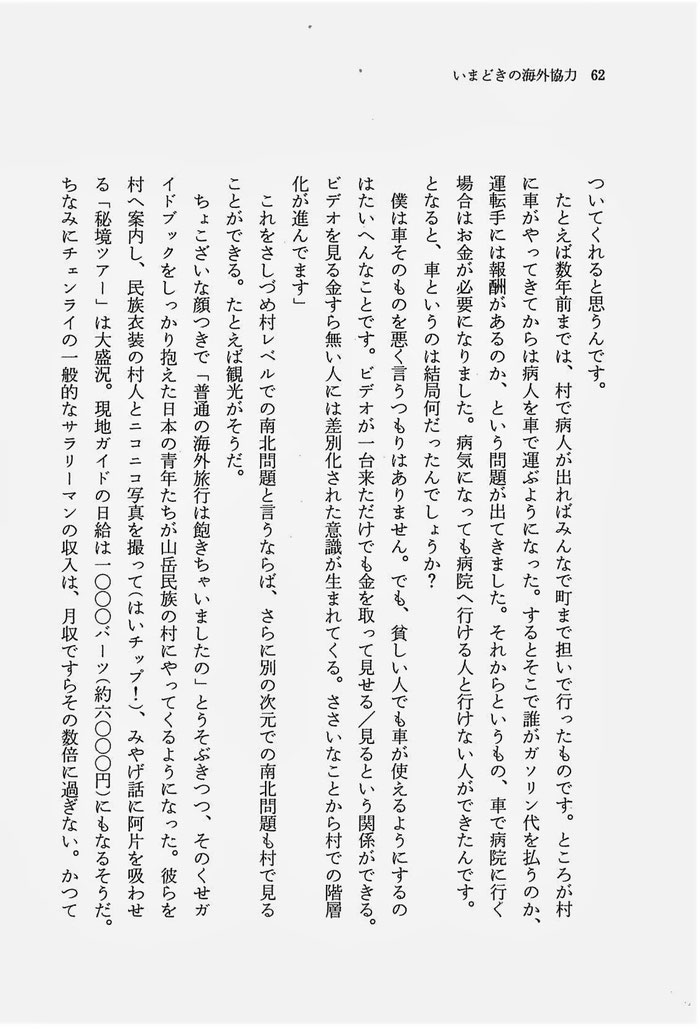 いまどきの海外協力 62
ついてくれると思うんです。
たとえば数年前までは、村で病人が出ればみんなで町まで担いで行ったものです。ところが村
に車がやってきてからは病人を車で運ぶようになった。するとそこで誰がガソリン代を払うのか、
運転手には報酬があるのか、という問題が出てきました。それからというもの、車で病院に行く
場合はお金が必要になりました。病気になっても病院へ行ける人と行けない人ができたんです。
となると、車というのは結局何だったんでしょうか?
僕は車そのものを悪く言うつもりはありません。でも、貧しい人でも車が使えるようにするの
はたいへんなことです。ビデオが一台来ただけでも金を取って見せる/見るという関係ができる。
ビデオを見る金すら無い人には差別化された意識が生まれてくる。ささいなことから村での階層
化が進んでます」
これをさしづめ村レベルでの南北問題と言うならば、さらに別の次元での南北問題も村で見る
ことができる。たとえば観光がそうだ。
ちょこざいな顔つきで「普通の海外旅行は飽きちゃいましたの」とうそぶきつつ、そのくせガ
イドブックをしっかり抱えた日本の青年たちが山岳民族の村にやってくるようになった。彼らを
村へ案内し、民族衣装の村人とニコニコ写真を撮って(はいチップ!)、みやげ話に阿片を吸わせ
る「秘境ツアー」は大盛況。現地ガイドの日給は一〇〇〇バーツ(約六〇〇〇円)にもなるそうだ。
ちなみにチェンライの一般的なサラリーマンの収入は、月収ですらその数倍に過ぎない。かつて